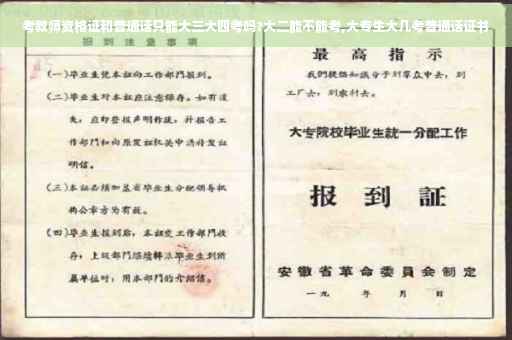 考教师资格证和普通话只能大三大四考吗?大二能不能考,大专生大几考普通话证书
报到注意事项
(一)毕业生凭本证向工作部门报到。
(二)毕业生对本证应注意保存。如有遗
失,应即登报声明作废,并报告工
作部门和向原发证机关申请补发证
明信。
(三)本证必须加盖省毕业生分配领导机
构公章方为有效。
(四)毕业生报到后,本证交工作部门收
存;上级部门继续转派毕业生到所
属单位时,用本部门的介绍信。
最高指示
我们提倡知识分子到群众中去,到
工厂去,到农村去。
大专院校毕业生统一分配工作
报到証
安徽省革命委員会制定
一九 年 月 日